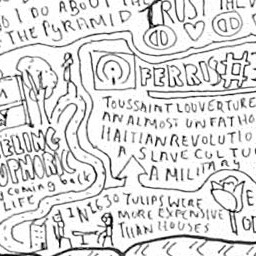 DO I DO ABOUT THE
THE PYRAMID
TRUST THE
FERRIS#3
TOUSSAINT LOUVERTURE
AN ALMOST UNFATHO
HAITIAN REVOLUTIO
A SLAVE CULTU
A MILITARY
EELING
EUPHORIC
coming back
LIFE
IN 1630 TULIPS WERE
MORE EXPENSIVE
THAN HOUSES